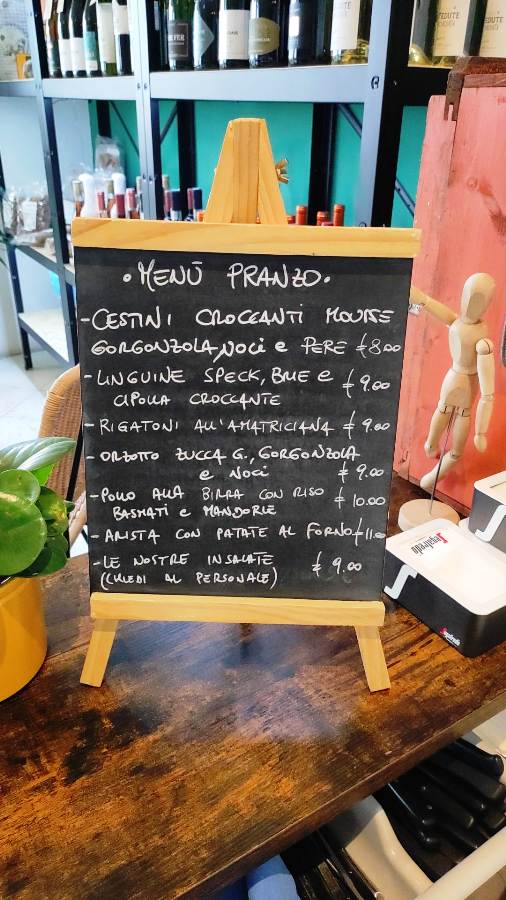 • MENÙ PRANZO •
- CESTINI CROCCANTI MOUSSE
GORGONZOLA, NOCI e PERE € 8.00
- LINGUINE SPECK, BRIE e € 9.00
CIPOLLA CROCCANTE
- RIGATONI ALL'AMATRICIANA € 9.00
- ORZOTTO ZUCCA G., GORGONZOLA
e NOCI € 9.00
- POLLO ALLA BIRRA CON RISO € 10.00
BASMATI e MANDORLE
- ARISTA CON PATATE AL FORNO € 11.00
- LE NOSTRE INSALATE € 9.00
(CHIEDI AL PERSONALE)
Segafredo